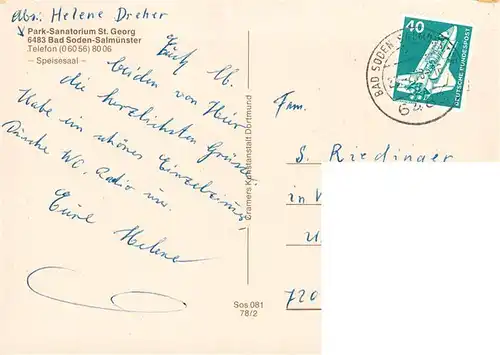 Abs: Helene Dreher
Park-Sanatorium St. Georg
6483 Bad Soden-Salmünster
Telefon (0 60 56) 80 06
– Speisesaal –
Euch lb.
beiden von hier
die herzlichsten Grüsse.
Habe ein schönes Einzelzimmer
Dusche WC. Radio usw.
Eure Helene
Sos 081
78/2
Cramers Kunstanstalt Dortmund
BAD SODEN
40
DEUTSCHE BUNDESPOST
Fam.
S. Riedinger
in
720